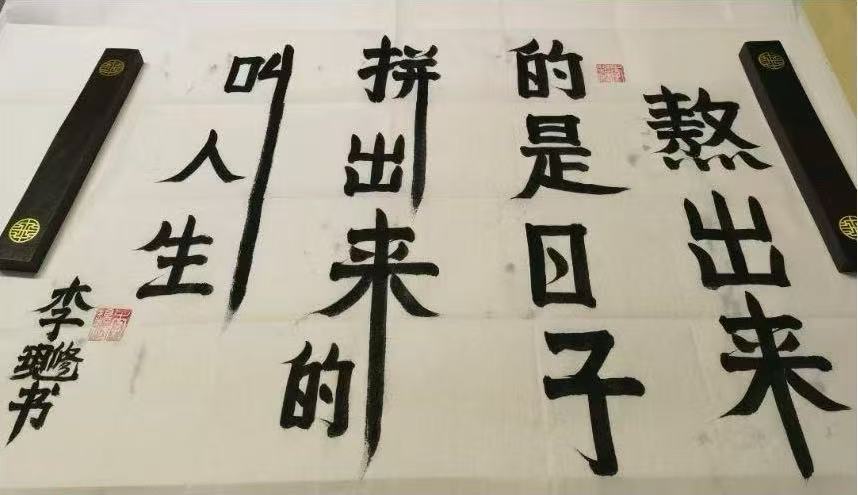 熬出来
的是日子
拼出来的
叫人生
李修瑰书